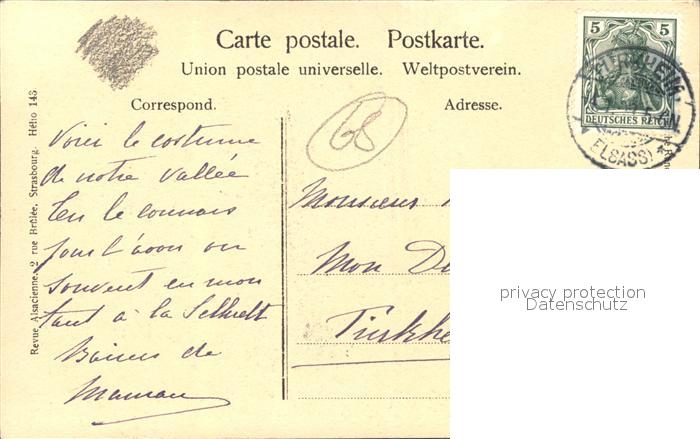 Carte postale. Postkarte.
Union postale universelle. Weltpostverein.
Correspond. Adresse.
5 5
DEUTSCHES REICH
ELSASS
68
Voici le costume
de notre vallée
Tu le connais
pour l'avoir vu
souvent en mon
tant à la
Baisers de
Maman
Monsieur
Mon
Türkhe
Revue Alsacienne. 2 rue Brûlée, Strasbourg. Hélio 143
privacy protection
Datenschutz